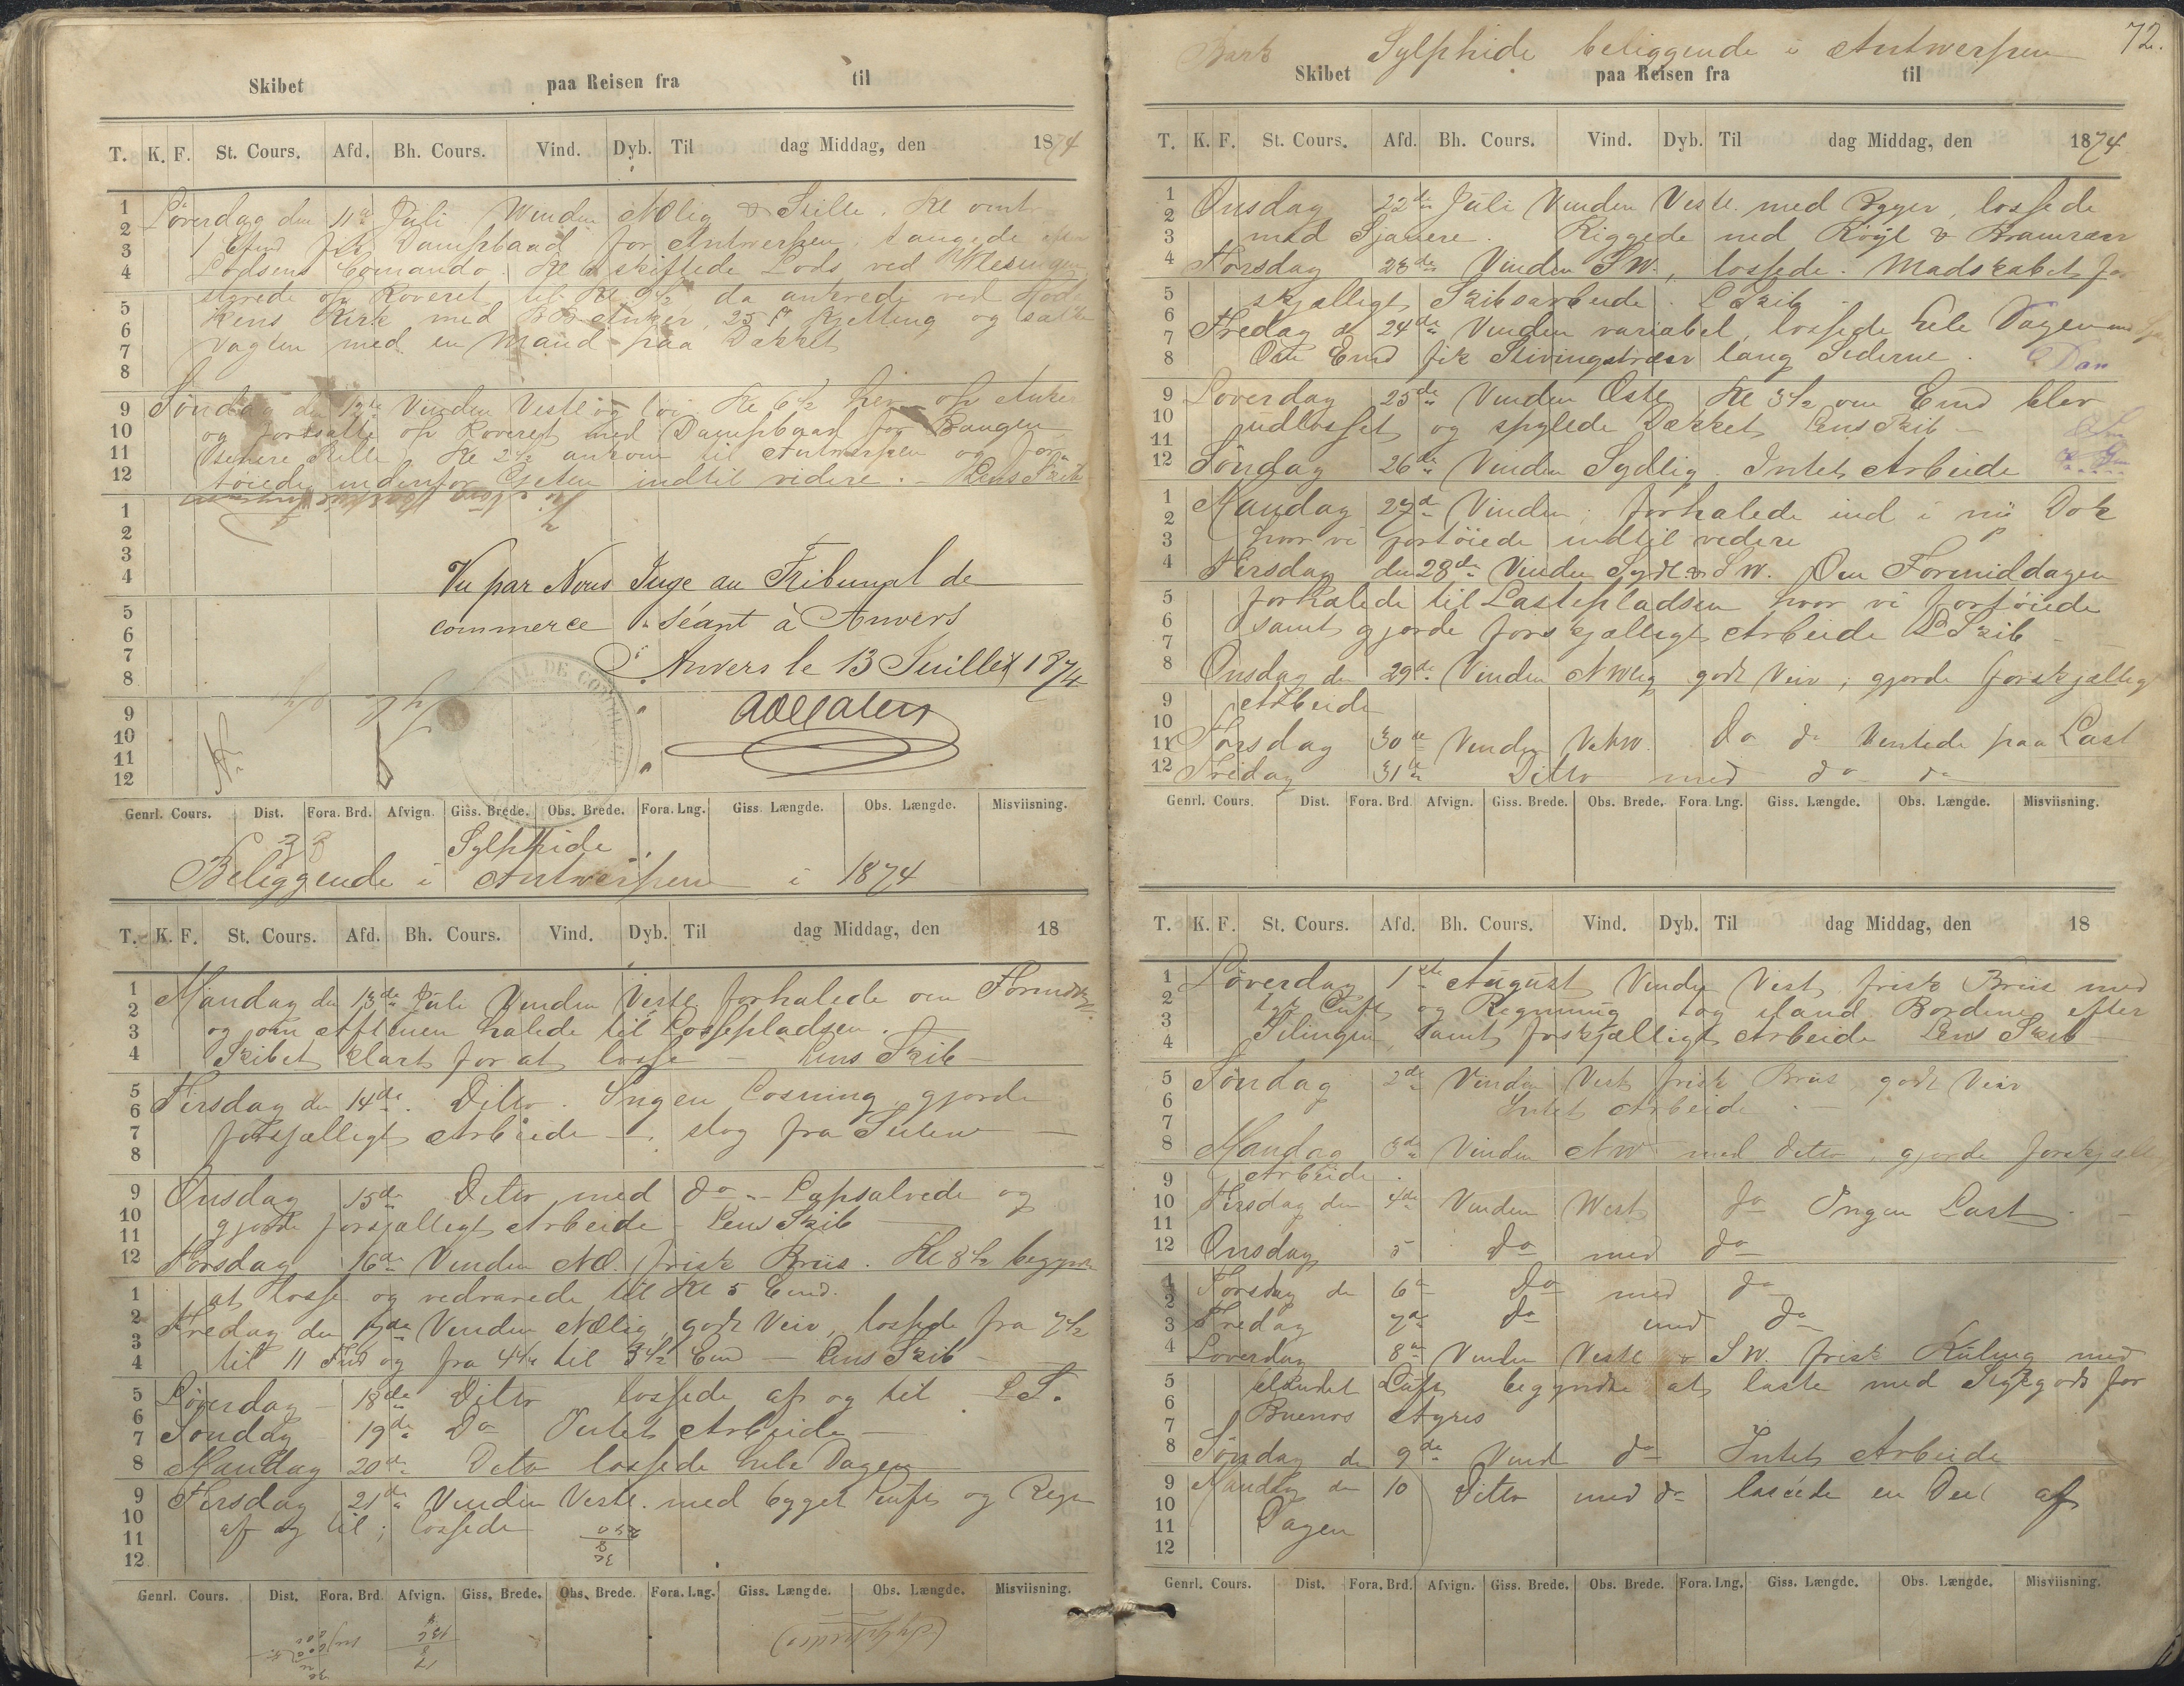 Skibet paa Reisen fra til
T. K. F. St. Cours. Afd. Bh. Cours. Vind. Dyb. Til dag Middag, den 1874
Löverdag den 11te Juli Vinden NOlig & Stille. Kl
1 Emd fik Dampbaad for Antwerpen, efter
Lodsens Comando. Kl skiftede Lods ved Vlesingen
styrede op Reveret til Kl 9 1/2 da ankrede ved
Kirk med BB Anker, 25 f Kjetting og satte
Vagten med en Mand paa Dækket
Söndag den 12te Vinden Vestl og Kl 6 1/2 hev op Anker
og fortsatte op Reveret med Dampbaad for Baugen
Stille Kl 2 1/2 ankom til Antwerpen og for-
töiede indenfor Gjeten indtil videre. - Lens Skib
Vu par Nous Juge au Tribunal de
commerce séant à Anvers
Anvers le 13 Juillet 1874
Genrl. Cours. Dist. Fora. Brd. Afvign. Giss. Brede. Obs. Brede. Fora. Lng. Giss. Længde. Obs. Længde. Misviisning.
Sylphide
Beliggende i Antwerpen i 1874
T. K. F. St. Cours. Afd. Bh. Cours. Vind. Dyb. Til dag Middag, den 18
Mandag den 13de Juli Vinden Vestl forhalede om Formdg.
og om Aftenen halede til Lossepladsen.
Skibet klart for at losse - Lens Skib
Tirsdag den 14de. Ditto. Ingen Losning, gjorde
forsjælligt Arbeide - slog fra
Onsdag 15de Ditto med do - Lapsalvede og
gjorde forsjælligt Arbeide - Lens Skib
Torsdag 16de Vinden NO. frisk Briis. Kl 8 1/2 begynte
at losse og vedvarede til Kl 5 Emd.
Fredag den 17de Vinden NOlig, godt Veir, lossede fra 7 1/2
til 11 Fmd og fra 4 1/2 til 5 1/2 Emd - Lens Skib -
Löverdag 18de Ditto lossede af og til L S.
Söndag 19de Do Intet Arbeide
Mandag 20de Ditto lossede hele Dagen
Tirsdag 21de Vinden Vestl. med bygget Luft og Regn
af og til; lossede
Genrl. Cours. Dist. Fora. Brd. Afvign. Giss. Brede. Obs. Brede. Fora. Lng. Giss. Længde. Obs. Længde. Misviisning.
72.
Bark Sylphide beliggende i Antwerpen
Skibet paa Reisen fra til
T. K. F. St. Cours. Afd. Bh. Cours. Vind. Dyb. Til dag Middag, den 1874
Onsdag 22de Juli Vinden Vestl. med Byger, lossede
med Sjauere. Riggede ned Röyl & Bramræer
Torsdag 23de Vinden SW., lossede. Madskabet for
skjælligt Skibsarbeide. L Skib
Fredag d 24de Vinden variabel, lossede hele Dagen
Om Emd fik Stivingstræer lang Siderne.
Löverdag 25de Vinden Ostl Kl 3 1/2 om Emd blev
udlosset og spylede Dækket Lens Skib -
Söndag 26de Vinden Sydlig. Intet Arbeide
Mandag 27de Vinden; forhalede ind i nü Dok
hvor vi fortöiede indtil vedere
Tirsdag den 28de Vinden Sydl & SW. Om Formiddagen
forhalede til Lastepladsen hvor vi fortöiede
samt gjorde forskjælligt Arbeide L Skib -
Onsdag den 29de Vinden NWlig godt Veir, gjorde forskjællig
Arbeide
Torsdag 30te Vinden VNW. Do do Ventede paa Last
Fredag 31te Ditto med do do
Genrl. Cours. Dist. Fora. Brd. Afvign. Giss. Brede. Obs. Brede. Fora. Lng. Giss. Længde. Obs. Længde. Misviisning.
T. K. F. St. Cours. Afd. Bh. Cours. Vind. Dyb. Til dag Middag, den 18
Löverdag 1ste August Vinden Vest frisk Briis med
tyk Luft og Regning tog iland Bordene efter
samt forskjælligt Arbeide Lens Skib -
Söndag 2de Vinden Vest frisk Briis godt Veir
Intet Arbeide. -
Mandag 3de Vinden NW med ditto, gjorde forskjællig
Arbeide.
Tirsdag den 4de Vinden West do Ingen Last
Onsdag 5 do med do
Torsdag den 6te Do med do
Fredag 7de do med do
Löverdag 8de Vinden Vestl & SW. frisk Kuling med
Luft begyndte at laste med Stykgods for
Buenos Ayres
Söndag den 9de Vind do Intet Arbeide
Mandag den 10 Ditto med do lastede en Deel af
Dagen
Genrl. Cours. Dist. Fora. Brd. Afvign. Giss. Brede. Obs. Brede. Fora. Lng. Giss. Længde. Obs. Længde. Misviisning.